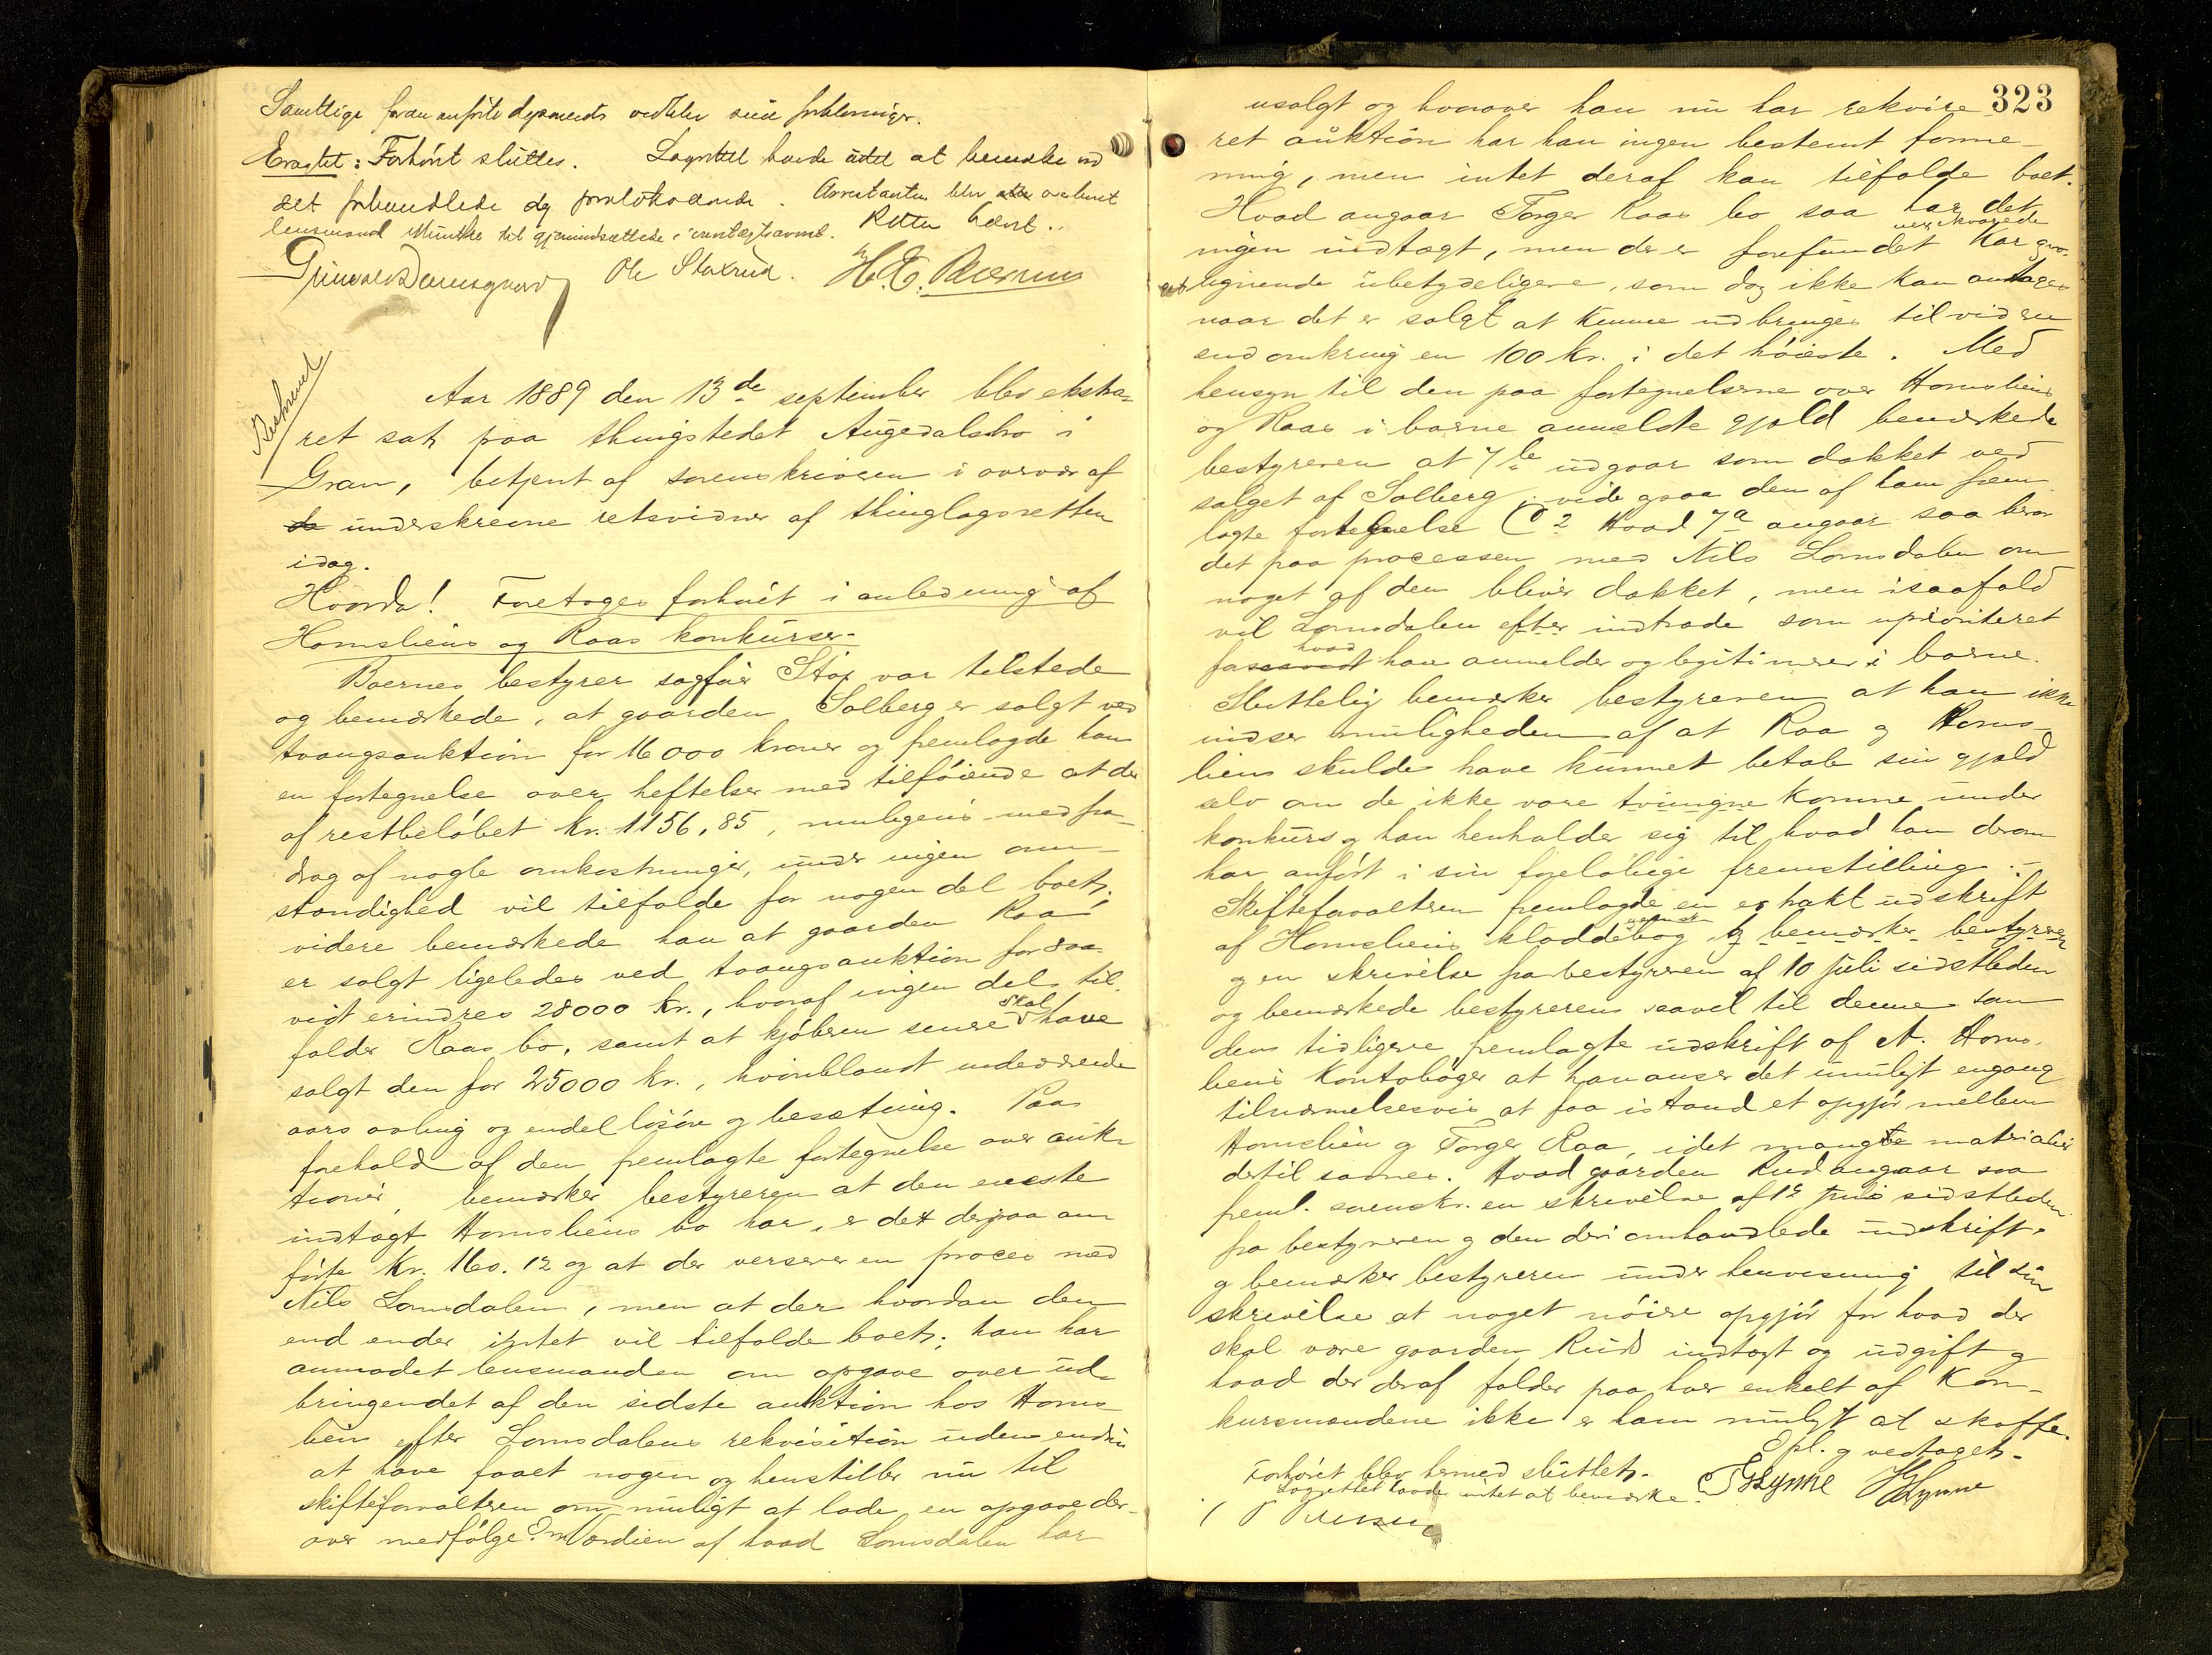 Samtlige foran anførte deponents vedblev sine forklaringer.
Eragtet: Forhøret sluttes. Lagrettet havde intet at bemærke ved
det forhandlede og protokolerede. Arrestanten blev overleveret
lensmand Münthe til gjenindsættelse i varetægtsarrest. Retten hævet.
Ole Staxrud.
Beskrevet
Aar 1889 den 13de september blev ekstra-
ret sat paa thingstedet Augedalsbro i
Gran, betjent af sorenskriveren i overvær af
de underskrevne retsvidner af thinglagsretten
idag.
Hvorda! Foretoges forhør i anledning af
Hornsliens og Raas konkurser.
Boernes bestyrer sagfør Stax var tilstede
og bemærkede, at gaarden Solberg er solgt ved
tvangsauktion for 16000 kroner og fremlagde han
en fortegnelse over heftelser med tilføiende at der
af restbeløbet kr. 1156,85, muligens med fra-
drag af nogle omkostninger, under ingen om-
stændighed vil tilfalde for nogen del boet;
videre bemærkede han at gaarden Raa
er solgt ligeledes ved tvangsauktion for saa-
vidt erindres 28000 kr., hvoraf ingen del til-
falder Raas bo, samt at kjøberen senere skal have
solgt den for 25000 kr., hvoriblandt indeværende
aars avling og endel løsøre og besætning. Paa
forehold af den fremlagte fortegnelse over auk-
tioner, bemærker bestyreren at den eneste
indtægt Hornsliens bo har, er det derpaa an-
førte kr. 160.12 og at der verserer en proces med
Nils Lomsdalen, men at der hvordan den
end ender intet vil tilfalde boet; han har
anmodet lensmanden om opgave over ud-
bringendet af den sidste auktion hos Horns-
lien efter Lomsdalens rekvisition uden endnu
at have faaet nogen og henstiller nu til
skifteforvalteren om muligt at lade en opgave der-
over medfølge. Om Værdien af hvad Lomsdalen har
323
usolgt og hvorover han nu har rekvire-
ret auktion har han ingen bestemt forme-
ning, men intet deraf kan tilfalde boet.
Hvad angaar Torger Raas bo saa har det
ingen indtægt, men der er forefundet
lignende ubetydeligere, som dog ikke kan antages
naar det er solgt at kunne udbringes til videre
end omkring en 100 kr. i det høieste. Med
hensyn til den paa fortegnelserne over Hornsliens
og Raas i boerne anmeldte gjæld bemærkede
bestyreren at 7b udgaar som dækket ved
salget af Solberg; vide paa den af ham frem-
lagte fortegnelse C2 Hvad 7a angaar saa beror
det paa processen med Nils Lomsdalen om
noget af den bliver dækket, men isaafald
vil Lomsdalen efter indtræde som uprioriteret
for hvad han anmelder og legitimerer i boerne.
Sluttelig bemærker bestyreren at han ikke
indser muligheden af at Raa og Horns-
lien skulde have kunnet betale sin gjæld
selv om de ikke vare tvungne komne under
konkurs og han henholder sig til hvad han derom
har anført i sin foreløbige fremstilling.
Skifteforvalteren fremlagde en extrakt udskrift
af Hornsliens kladdebog og bemærker bestyreren
og en skrivelse fra bestyreren af 10 juli sidstleden
og bemærkede bestyreren saavel til denne som
den tidligere fremlagte udskrift af A. Horns-
liens Kontobøger at han anser det umuligt engang
tilnærmelsesvis at faa istand et opgjør mellem
Hornslien og Torger Raa, idet mangte materialier
dertil savnes. Hvad gaarden Rud angaar saa
freml. sorenskr. en skrivelse af 12 juni sidstleden
fra bestyreren og den deri omhandlede udskrift,
og bemærker bestyreren under henvisning til sin
skrivelse at noget nøiere opgjør for hvad der
skal være gaarden Ruds indtægt og udgift og
hvad der deraf falder paa hver enkelt af Kon-
kursmændene ikke er ham muligt at skaffe.
Opl. og vedtaget.
Forhøret blev hermed sluttet.
Lagrettet havde intet at bemærke.
Lynne Lynne